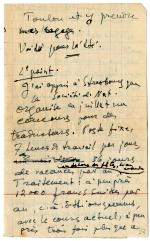 Toulon et y prendre
mes bagages.
Voilà pour l'été.
2e point.
J'ai appris à Strasbourg que
la Société des Nat.
organise en juillet un
concours pour des
traducteurs. Poste fixe,
7 heures de travail par jour
de vacances par an.
Traitement : à peu près
francs suisses par
an, c.à.d.
avec le cours actuel, à peu
près trois fois plus que